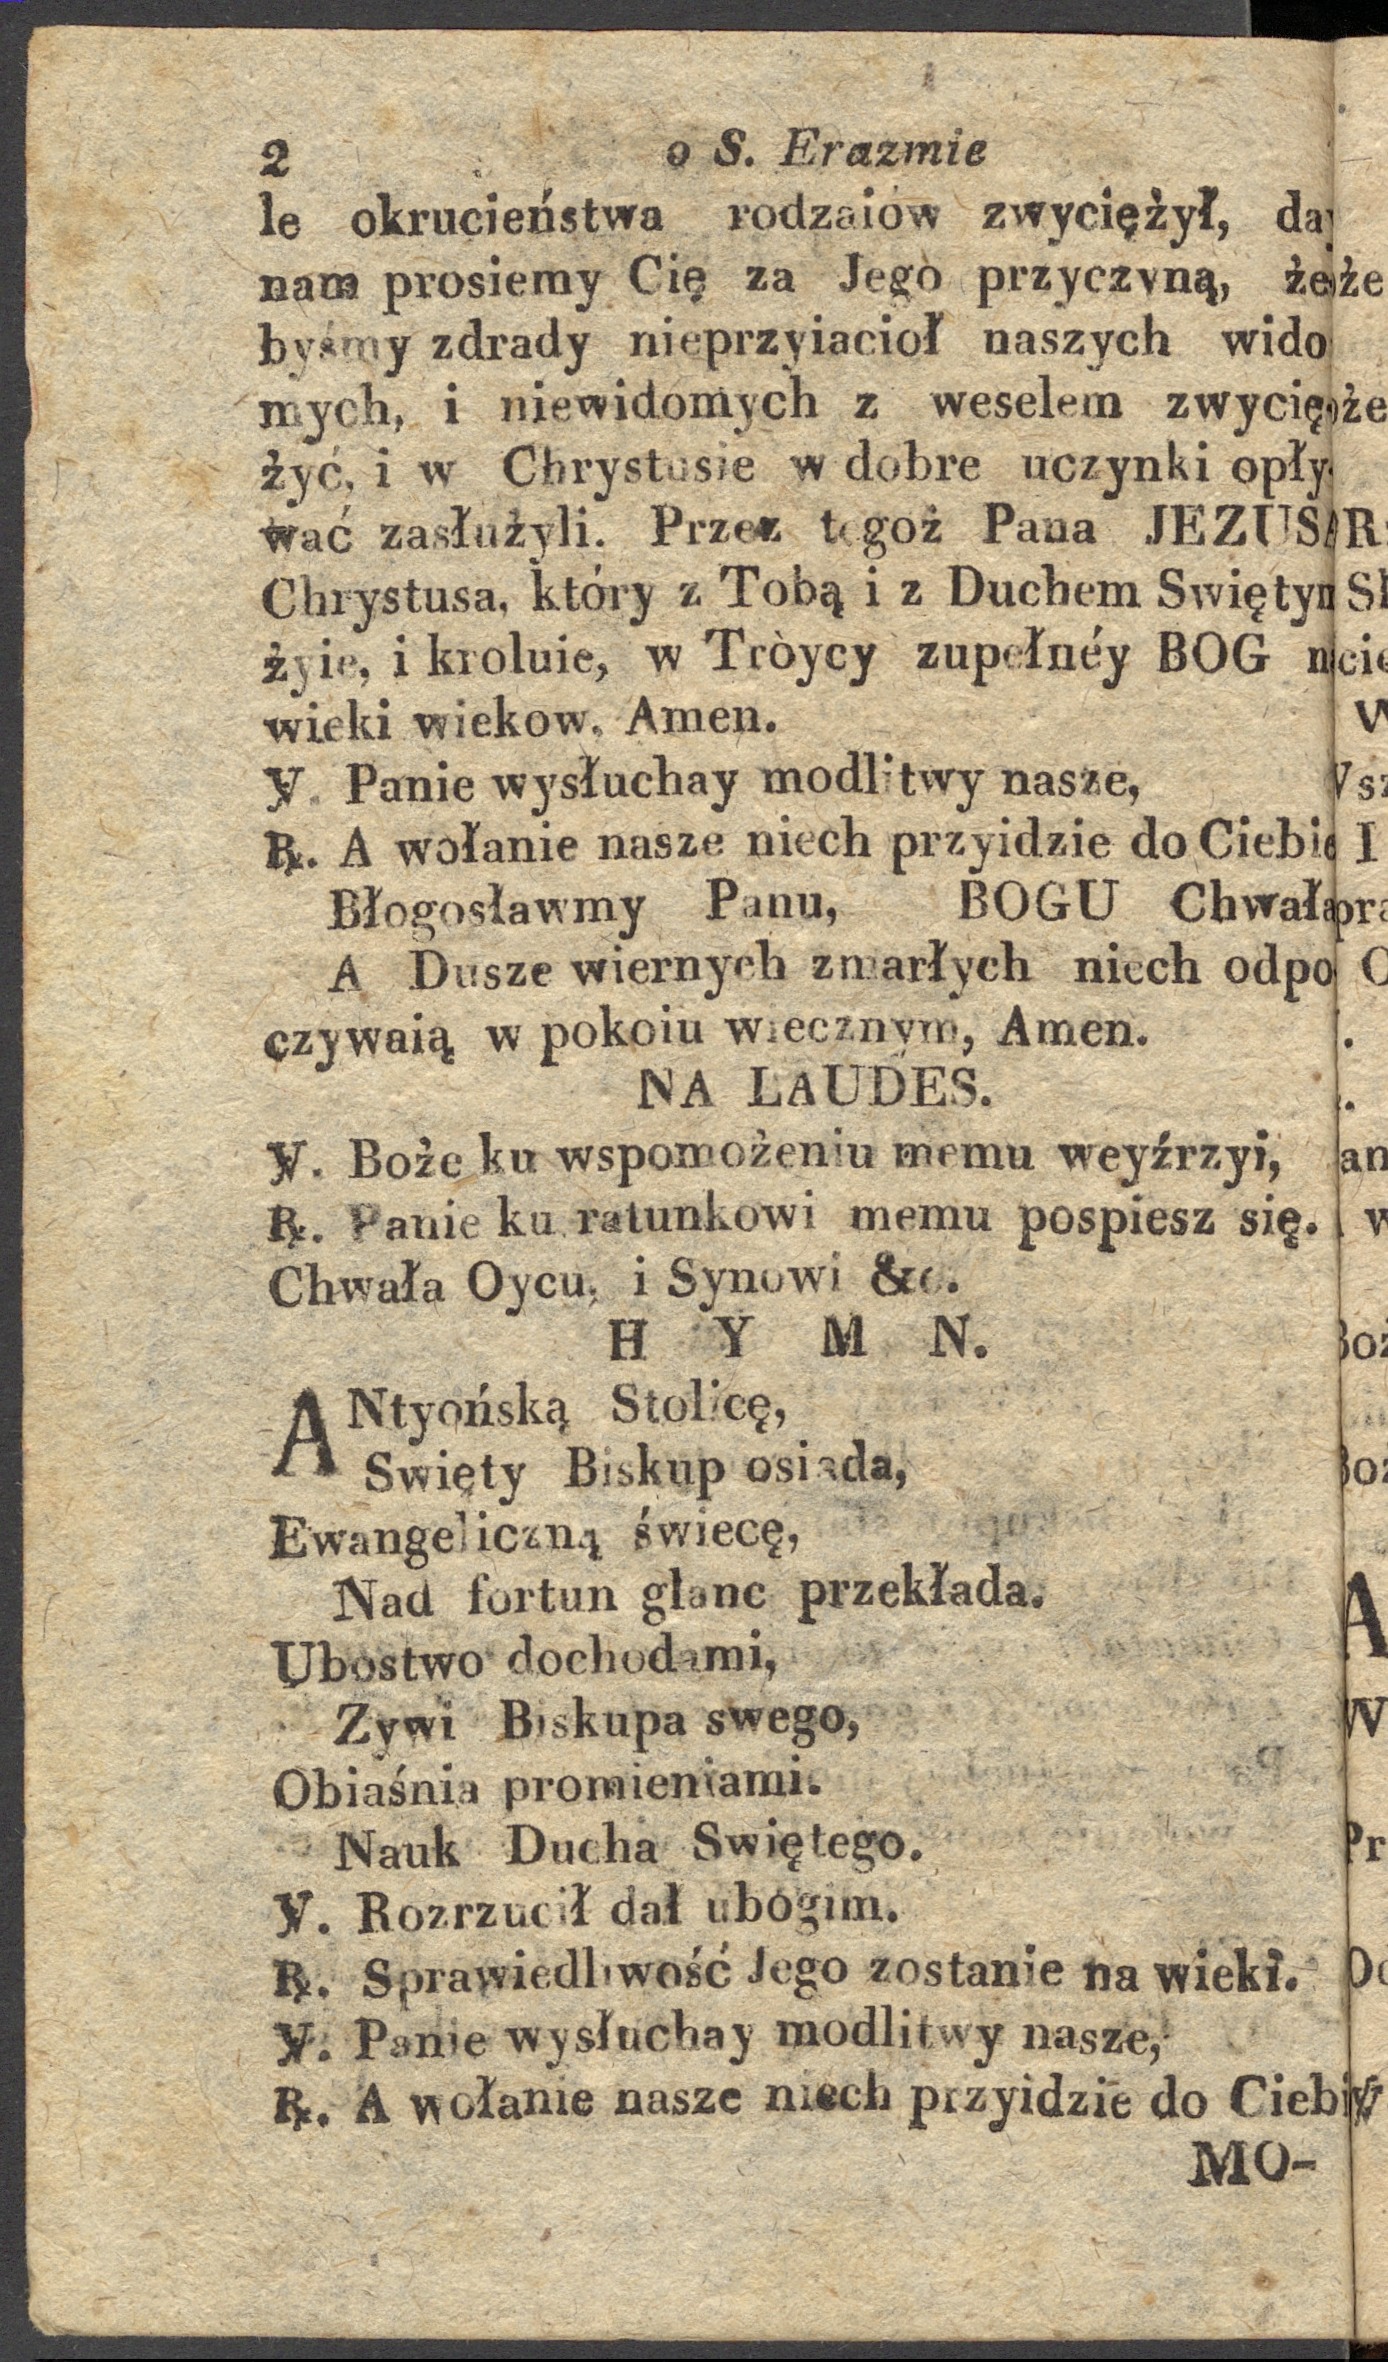 2 o S. Erazmie
le okrucieństwa rodzaiów zwyciężył, day
nam prosiemy Cię za Jego przyczyną, że
byśmy zdrady nieprzyiacioł naszych wido
mych, i niewidomych z weselem zwycię
żyć, i w Chrystusie w dobre uczynki opły
wać zasłużyli. Przez tegoż Pana JEZUSA
Chrystusa, który z Tobą i z Duchem Swiętym
żyie, i kroluie, w Tròycy zupełnéy BOG n
wieki wiekow. Amen.
℣. Panie wysłuchay modlitwy nasze,
℟. A wołanie nasze niech przyidzie do Ciebie
Błogosławmy Panu, BOGU Chwała
A Dusze wiernych zmarłych niech odpo
czywaią w pokoiu wiecznym, Amen.
NA LAUDES.
℣. Boże ku wspomożeniu memu weyźrzyi,
℟. Panie ku ratunkowi memu pospiesz się.
Chwała Oycu, i Synowi &c.
H Y M N.
ANtyońską Stolicę,
Swięty Biskup osiada,
Ewangeliczną świecę,
Nad fortun glanc przekłada.
Ubostwo dochodami,
Zywi Biskupa swego,
Obiaśnia promieniami.
Nauk Ducha Swiętego.
℣. Rozrzucił dał ubogim.
℟. Sprawiedliwość Jego zostanie na wieki.
℣. Panie wysłuchay modlitwy nasze,
℟. A wołanie nasze niech przyidzie do Ciebi
MO-